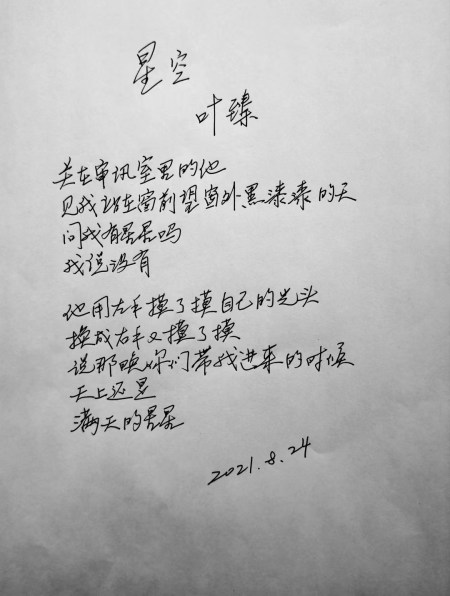 星空
叶臻
关在审讯室里的他
见我站在窗前望窗外黑漆漆的天
问我有星星吗
我说没有
他用左手摸了摸自己的光头
换成右手又摸了摸
说那晚你们带我进来的时候
天上还是
满天的星星
2021.8.24